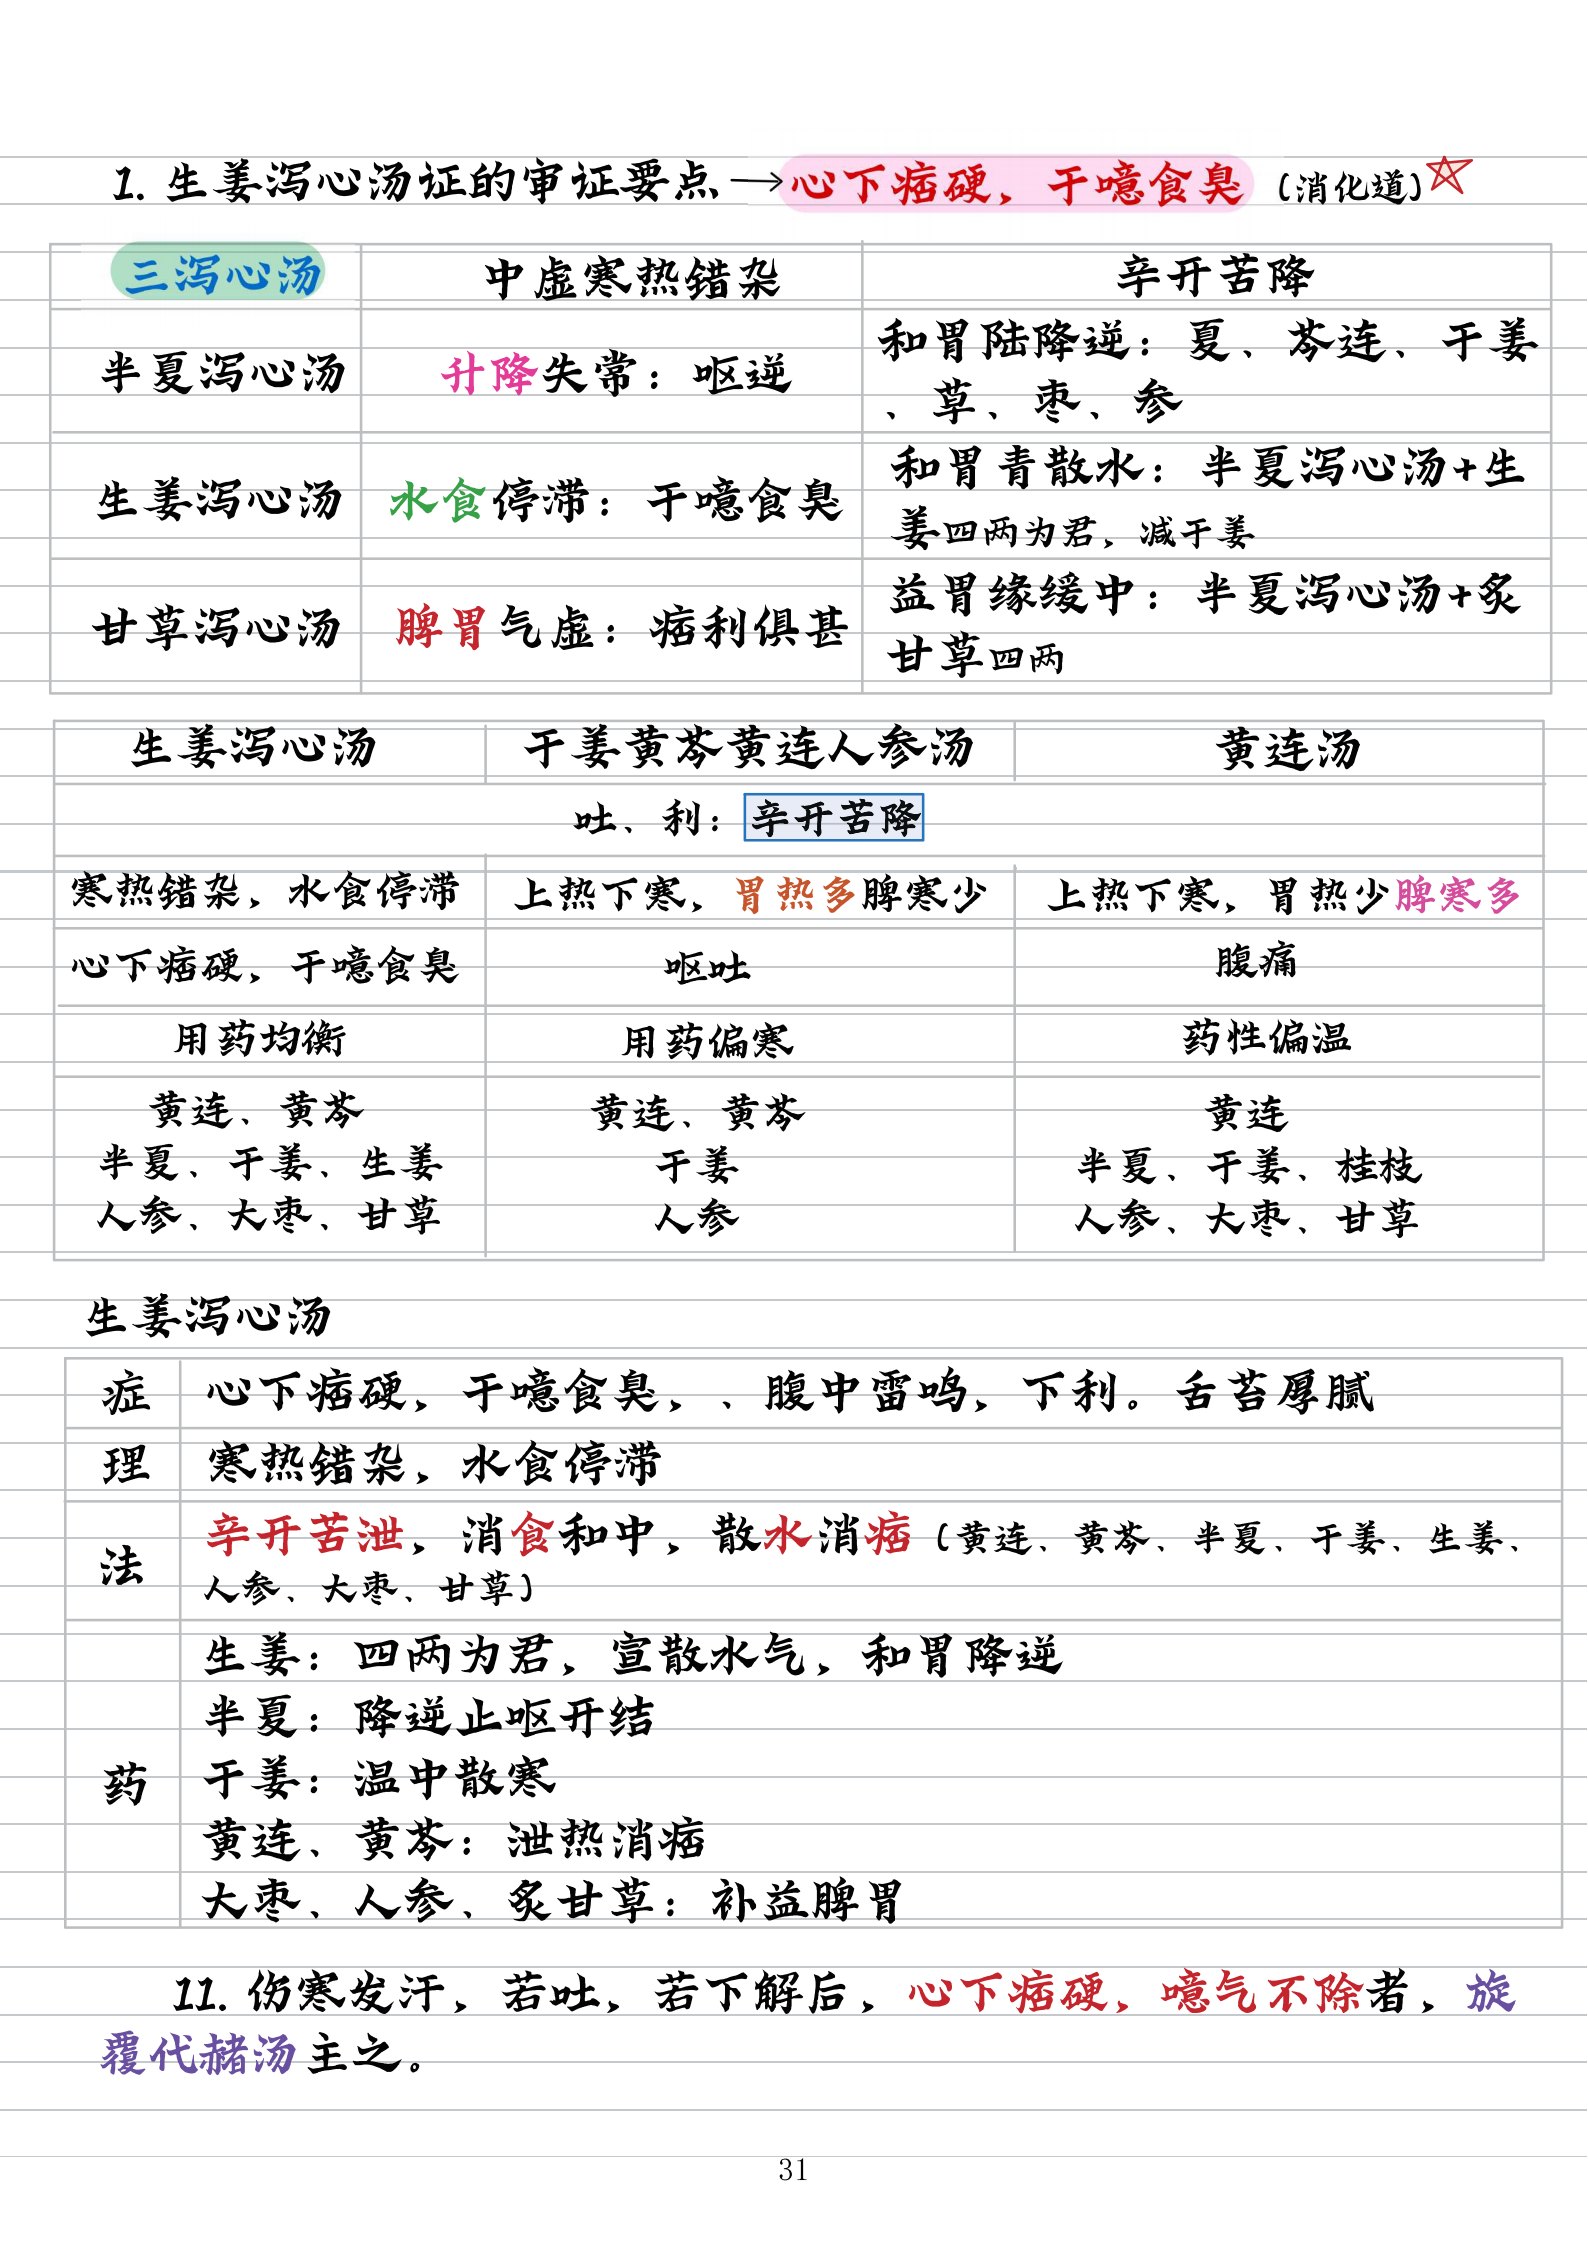 1. 生姜泻心汤证的审证要点→心下痞硬，干噫食臭（消化道）
三泻心汤 中虚寒热错杂 辛开苦降
半夏泻心汤 升降失常：呕逆 和胃陆降逆：夏、芩连、干姜
、草、枣、参
生姜泻心汤 水食停滞：干噫食臭 和胃青散水：半夏泻心汤+生
姜四两为君，减干姜
甘草泻心汤 脾胃气虚：痞利俱甚 益胃缘缓中：半夏泻心汤+炙
甘草四两
生姜泻心汤 干姜黄芩黄连人参汤 黄连汤
吐、利：辛开苦降
寒热错杂，水食停滞 上热下寒，胃热多脾寒少 上热下寒，胃热少脾寒多
心下痞硬，干噫食臭 呕吐 腹痛
用药均衡 用药偏寒 药性偏温
黄连、黄芩 黄连、黄芩 黄连
半夏、干姜、生姜 干姜 半夏、干姜、桂枝
人参、大枣、甘草 人参 人参、大枣、甘草
生姜泻心汤
症 心下痞硬，干噫食臭，、腹中雷鸣，下利。舌苔厚腻
理 寒热错杂，水食停滞
法 辛开苦泄，消食和中，散水消痞（黄连、黄芩、半夏、干姜、生姜、
人参、大枣、甘草）
药 生姜：四两为君，宣散水气，和胃降逆
半夏：降逆止呕开结
干姜：温中散寒
黄连、黄芩：泄热消痞
大枣、人参、炙甘草：补益脾胃
11. 伤寒发汗，若吐，若下解后，心下痞硬，噫气不除者，旋
覆代赭汤主之。
31